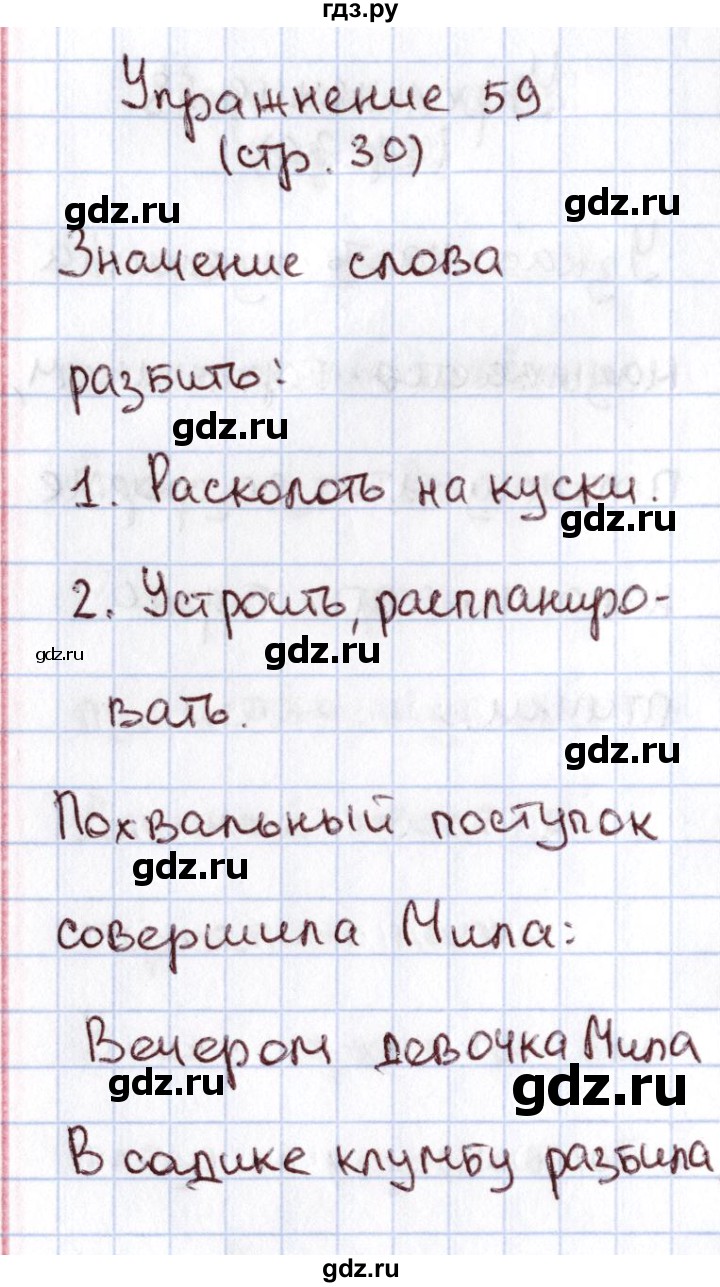 гдз.ру
Упражнение 59
(стр. 30)
gdz.ru
gdz.ru
Значение слова
разбить:
gdz.ru
1. Расколоть на куски.
gdz.ru
2. Устроить, распланиро-
gdz.ru
gdz.ru
вать.
gdz.ru
Похвальный поступок
gdz.ru
совершила Мила:
Вечером девочка Мила
gdz.ru
gdz.ru
В садике клумбу разбила
gdz.ru